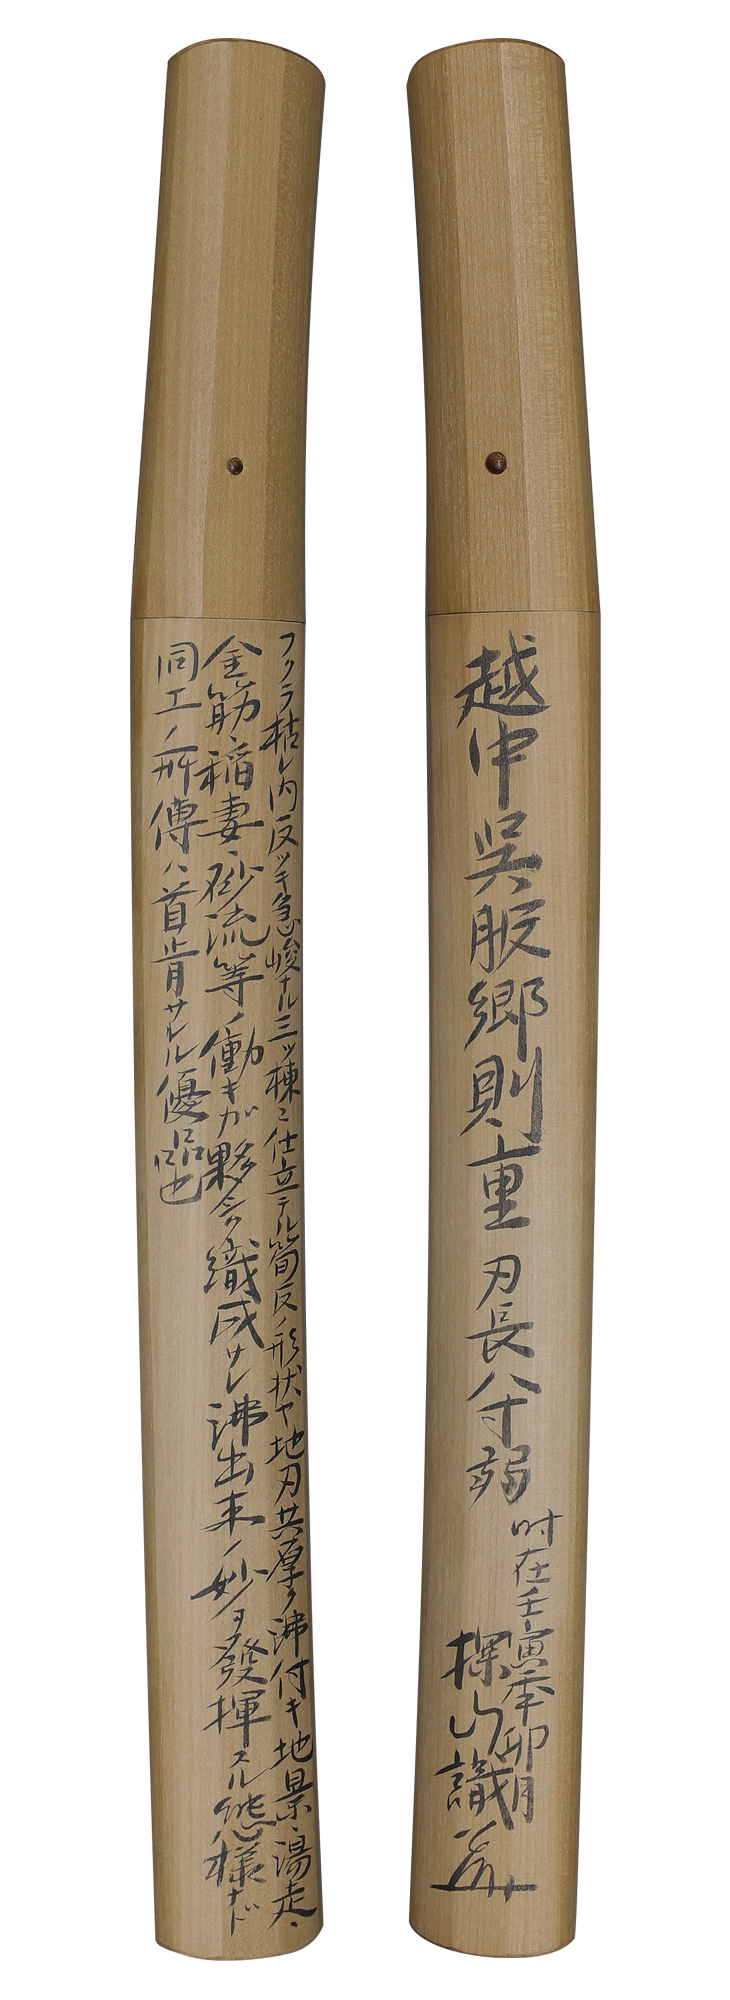 越中呉服郷則重 刃長八寸弱
時在壬寅季卯月
探山識
フクラ枯レ内反ツキ急峻ナル三ツ棟ニ仕立テル筍反ノ形状ヤ地刃共厚ク沸付キ地景、湯走、
金筋、稲妻、砂流等ノ働キガ夥多織成サレ沸出来ノ妙ヲ發揮スル態様ナド
同工ノ所傳ハ首肯サルル優品也